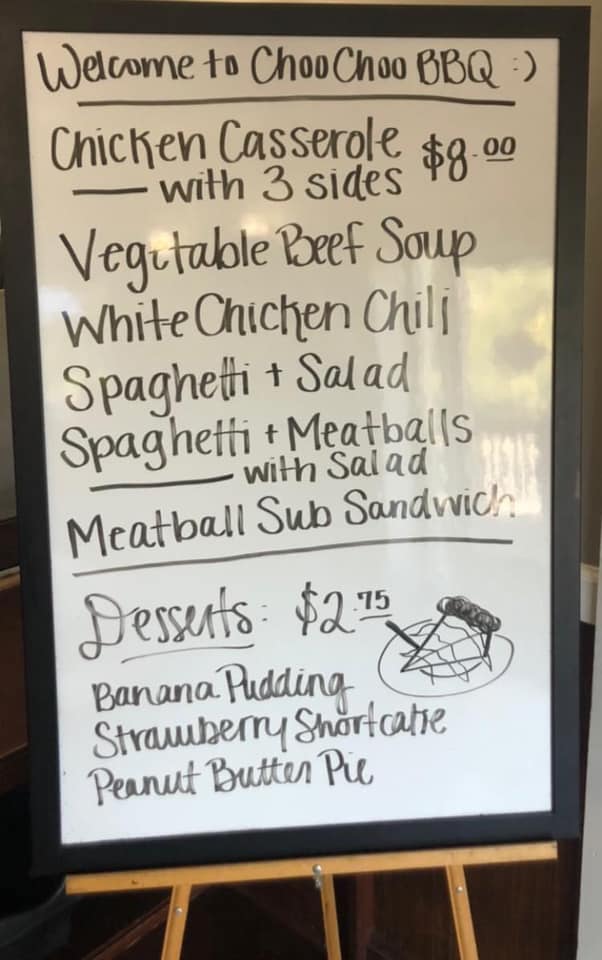 Welcome to Choo Choo BBQ :)
Chicken Casserole $8.00
— with 3 sides
Vegetable Beef Soup
White Chicken Chili
Spaghetti + Salad
Spaghetti + Meatballs
— with Salad
Meatball Sub Sandwich
Desserts: $2.75
Banana Pudding
Strawberry Shortcake
Peanut Butter Pie